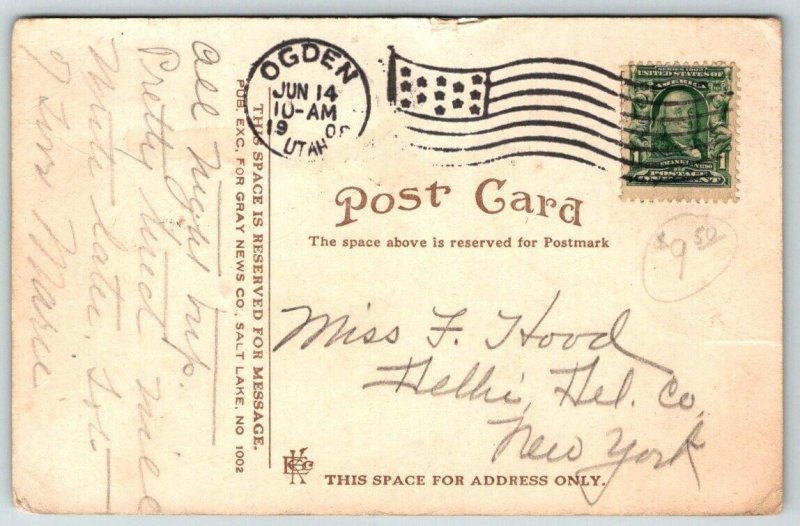 OGDEN
JUN 14
10-AM
19 08
UTAH
SERIES 1902
UNITED STATES OF AMERICA
FRANKLIN
1 1
POSTAGE
ONE CENT
Post Card
The space above is reserved for Postmark
$9.50
Miss F. Hood
Delhi, Del. Co.
New York
THIS SPACE FOR ADDRESS ONLY.
THIS SPACE IS RESERVED FOR MESSAGE.
PUB. EXC. FOR GRAY NEWS CO., SALT LAKE, NO 1002
All night trip.
Pretty tired will
Write later.
Marie